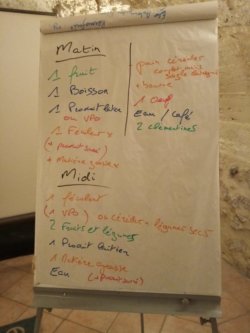 Matin
1 fruit
1 Boisson
1 Produit laitier
ou VPO
1 Féculent
(+ produit sucré)
+ Matière grasse
Midi
1 féculent
(1 VPO) ou céréales + légumes secs
2 Fruits et légumes
1 Produit laitier
1 Matière grasse
Eau (+ produit sucré)
pain céréales
+ beurre
1 oeuf
Eau / Café
2 clémentines